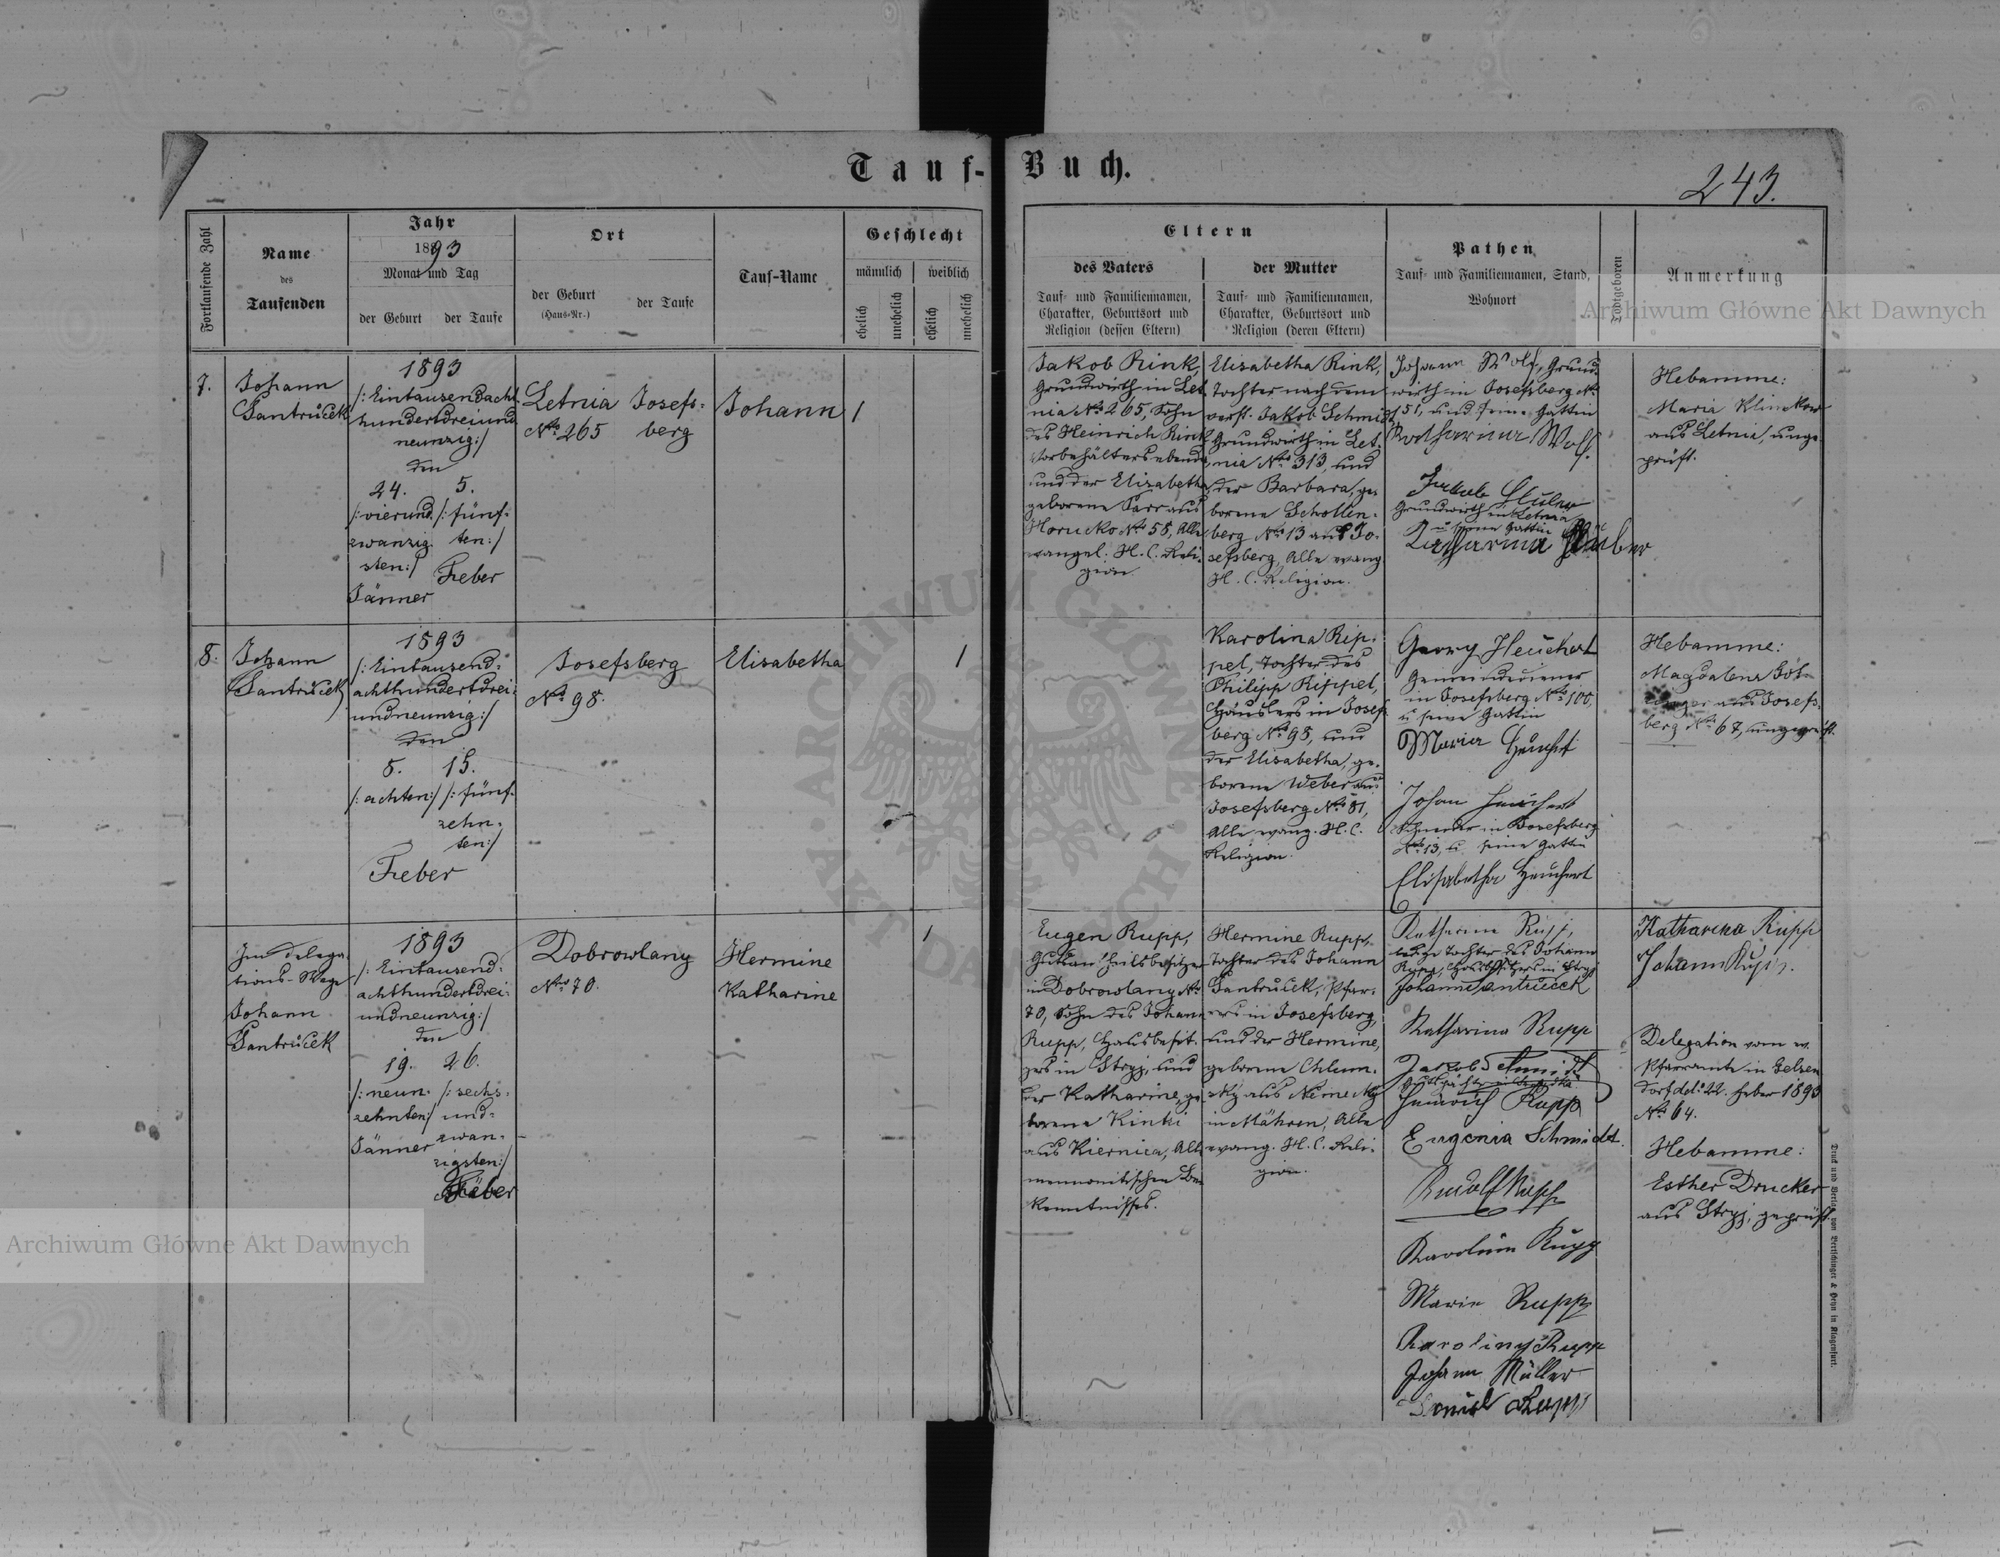 Tauf-Buch.
243.
Fortlaufende Zahl
Name
des
Taufenden
Jahr
1893
Monat und Tag
der Geburt
der Taufe
Ort
der Geburt
(Haus-Nr.)
der Taufe
Tauf-Name
Geschlecht
männlich
weiblich
ehelich
unehelich
ehelich
unehelich
Eltern
des Vaters
Tauf- und Familiennamen,
Charakter, Geburtsort und
Religion (dessen Eltern)
der Mutter
Tauf- und Familiennamen,
Charakter, Geburtsort und
Religion (deren Eltern)
Pathen
Tauf- und Familiennamen, Stand,
Wohnort
Todtgeboren
Anmerkung
7.
Johann
Santrůček
1893
/: Eintausendacht
hundertdreiund
neunzig :/
den
24.
/: vierund
zwanzig
sten :/
Jänner
5.
/: fünf-
ten :/
Feber
Letnia
No 265
Josefs-
berg
Johann
1
Jakob Rink,
Grundwirth in Let
nia No 265, Sohn
des Heinrich Rink
Vorbehälters ebenda
und der Elisabetha
geborene Parr aus
Horucko No 58, Alle
evangel. H. C. Reli-
gion.
Elisabetha Rink,
Tochter nach dem
verst. Jakob Schmidt
Grundwirth in Let-
nia No 313, und
der Barbara, ge-
borene Schollen-
berg No 13 aus Jo-
sefsberg, Alle evang
H. C. Religion.
Johann Wolf, Grund-
wirth in Josefsberg No
151, und seine Gattin
Katharina Wolf.
Jakob Stuber
Grundwirth in Letnia
u seine Gattin
Katharina Stuber
Hebamme:
Maria Klinker
aus Letnia, unge-
prüft.
8.
Johann
Santrůček
1893
/: Eintausend-
achthundertdrei-
undneunzig :/
den
8.
/: achten :/
15.
/: fünf-
zehn-
ten :/
Feber
Josefsberg
No 98.
Elisabetha
1
Karolina Rip-
pel, Tochter des
Philipp Rippel,
Häuslers in Josef
berg No 98, und
der Elisabetha, ge-
borene Weber aus
Josefsberg No 81,
Alle evang. H. C.
Religion.
Georg Heuchert
Gemeindediener
in Josefsberg No 100,
u seine Gattin
Maria Heuchert
Johan Heuchert
in Josefsberg
No 13, u seine Gattin
Elisabetha Heuchert
Hebamme:
Magdalena
aus Josefs-
berg No 67, ungeprüft.
Im Delega-
tions-Wege
Johann
Santrůček
1893
/: Eintausend-
achthundertdrei-
undneunzig :/
den
19.
/: neun-
zehnten :/
Jänner
26.
/: sechs-
und-
zwan-
zigsten :/
Feber
Dobrowlany
No 70.
Hermine
Katharine
1
Eugen Rupp,
Gutsantheilsbesitzer
in Dobrowlany No
70, Sohn des Johann
Rupp, Hausbesit-
zers in Stryj, und
der Katharine, ge
borene Kintzi
aus Kiernica, Alle
mennonitischen Be-
kenntnisses.
Hermine Rupp,
Tochter des Johann
Santrůček, Pfar-
rers in Josefsberg,
und der Hermine,
geborene Chlum-
sky aus Německy
in Mähren, Alle
evang. H. C. Reli-
gion.
Katharina Rupp,
ledige Tochter des Johann
Rupp, Hausbesitzers in Stryj
Johann Santrůček
Katharina Rupp
Jakob Schmidt
Heinrich Rupp
Eugenia Schmidt.
Rudolf Rupp
Karolina Rupp
Maria Rupp
Karolina Rupp
Johann Müller
Daniel Rupp
Katharina Rupp
Johann Rupp.
Delegation vom ev.
Pfarramte in Gelsen
dorf ddo 22. Feber 1893
No 64.
Hebamme:
Esther Drucker
aus Stryj, geprüft.
Druck und Verlag von Bertschinger & Heyn in Klagenfurt.
Archiwum Główne Akt Dawnych
Archiwum Główne Akt Dawnych
ARCHIWUM GŁÓWNE AKT DAWNYCH